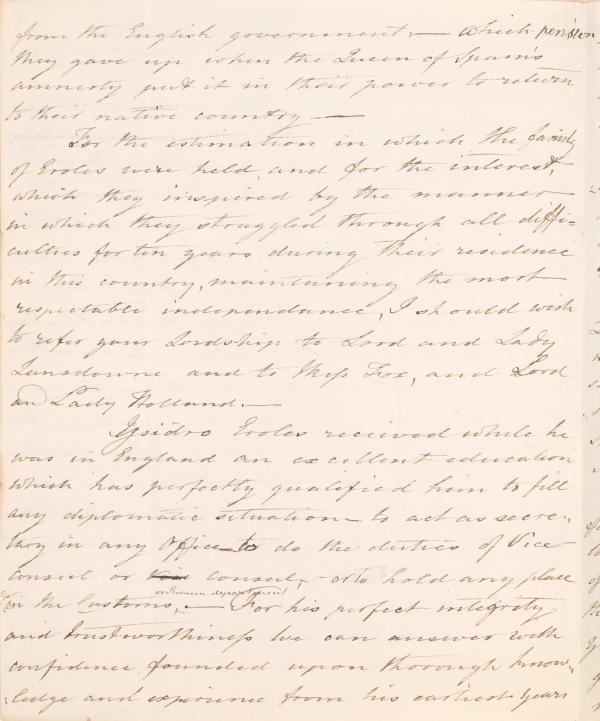 from the English government, — which pension
they gave up when the Queen of Spain's
amnesty put it in their power to return
to their native country —
For the estimation in which the family
of Eroles were held and for the interest,
which they inspired by the manner
in which they struggled through all diffi-
culties for ten years during their residence
in this country, maintaining the most
respectable independance, I should wish
to refer your Lordship to Lord and Lady
Lansdowne and to Miss Fox, and Lord
and Lady Holland. —
Ysidro Eroles received while he
was in England an excellent education
which has perfectly qualified him to fill
any diplomatic situation — to act as secre-
tary in any Office — to do the duties of Vice
consul or consul, — or to hold any place
or Revenue department
in the Customs, — For his perfect integrity
and trustworthiness we can answer with
confidence founded upon thorough know-
ledge and experience from his earliest years